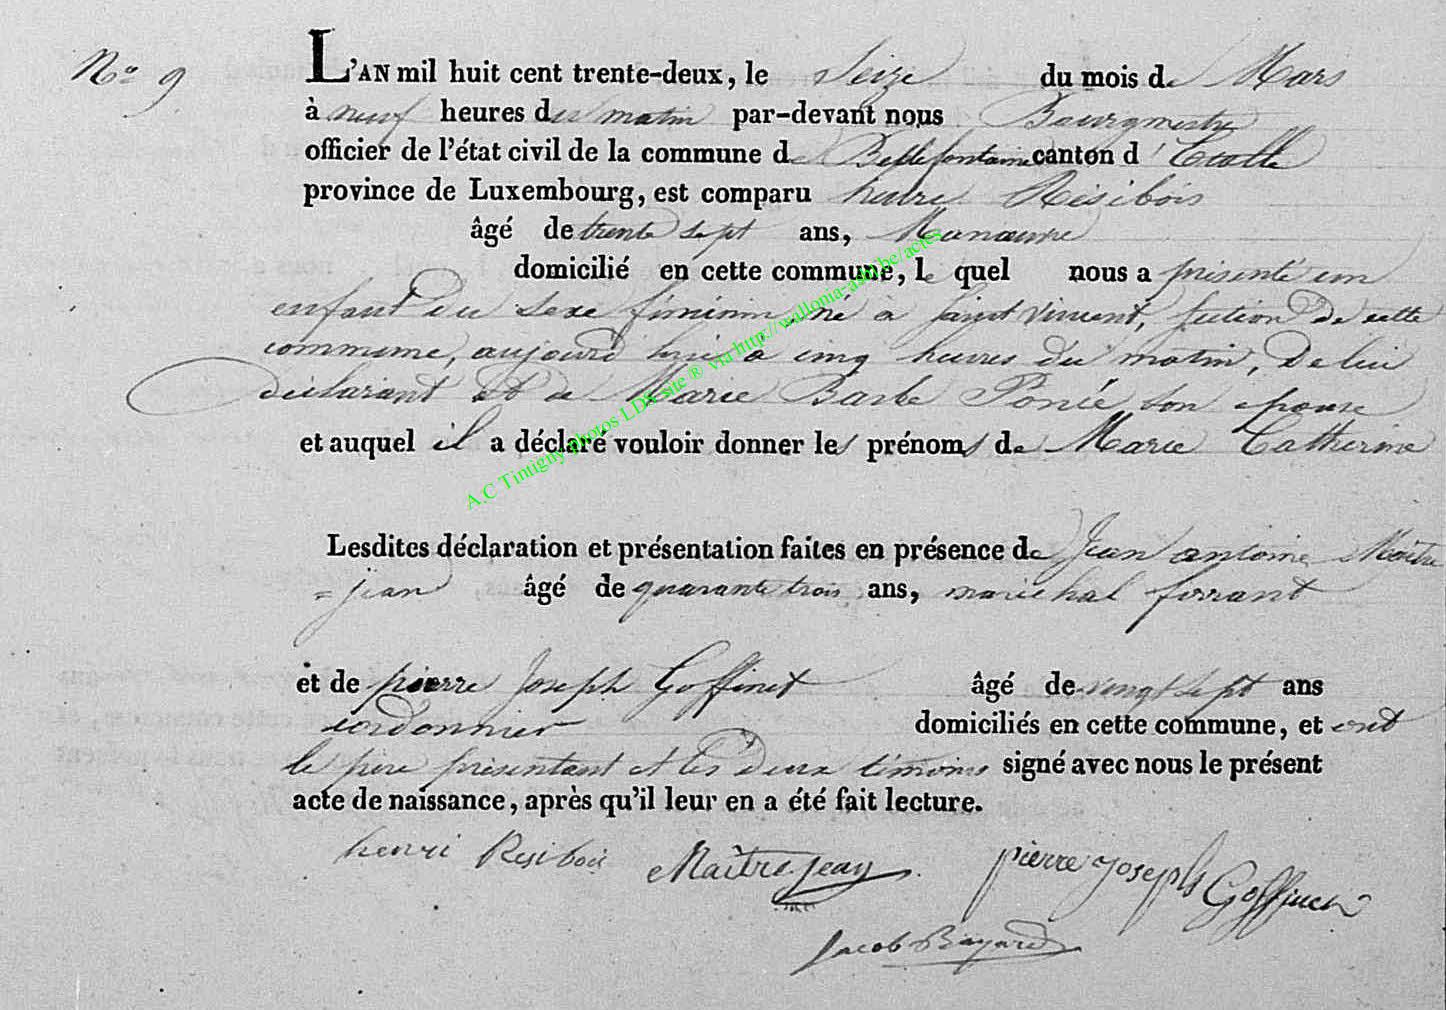 N° 9
L'AN mil huit cent trente-deux, le Seize du mois de Mars
à neuf heures du matin par-devant nous Bourgmestre
officier de l'état civil de la commune de Bellefontaine canton d'Etalle
province de Luxembourg, est comparu henri Résibois
âgé de trente sept ans, Manœuvre
domicilié en cette commune, le quel nous a présenté un
enfant du sexe féminin, né à saint Vincent, section de cette
commune, aujourd'hui à cinq heures du matin, de lui
déclarant et de Marie Barbe Poncé son épouse
et auquel il a déclaré vouloir donner les prénoms de Marie Catherine
Lesdites déclaration et présentation faites en présence de Jean antoine Maitre
=jean âgé de quarante trois ans, maréchal ferrant
et de pierre Joseph Goffinet âgé de vingt sept ans
cordonnier domiciliés en cette commune, et ont
le père présentant et les deux témoins signé avec nous le présent
acte de naissance, après qu'il leur en a été fait lecture.
henri Resibois Maître jean pierre joseph Goffinet
Jacob Bayard
A.C Tintigny photos LDS site ® via http://wallonia-asbl.be/actes